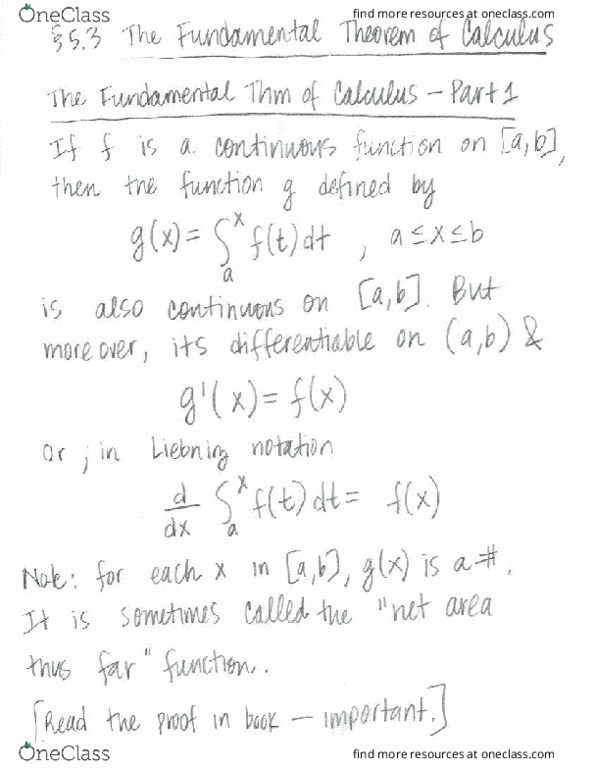 OneClass find more resources at oneclass.com
§5.3 The Fundamental Theorem of Calculus
The Fundamental Thm of Calculus – Part 1
If f is a continuous function on [a,b],
then the function g defined by
g(x) = ∫ₐˣ f(t)dt , a ≤ x ≤ b
is also continuous on [a,b]. But
moreover, its differentiable on (a,b) &
g'(x) = f(x)
or, in Liebniz notation
d/dx ∫ₐˣ f(t)dt = f(x)
Note: for each x in [a,b], g(x) is a #.
It is sometimes called the "net area
thus far" function.
[Read the proof in book – important.]
OneClass find more resources at oneclass.com